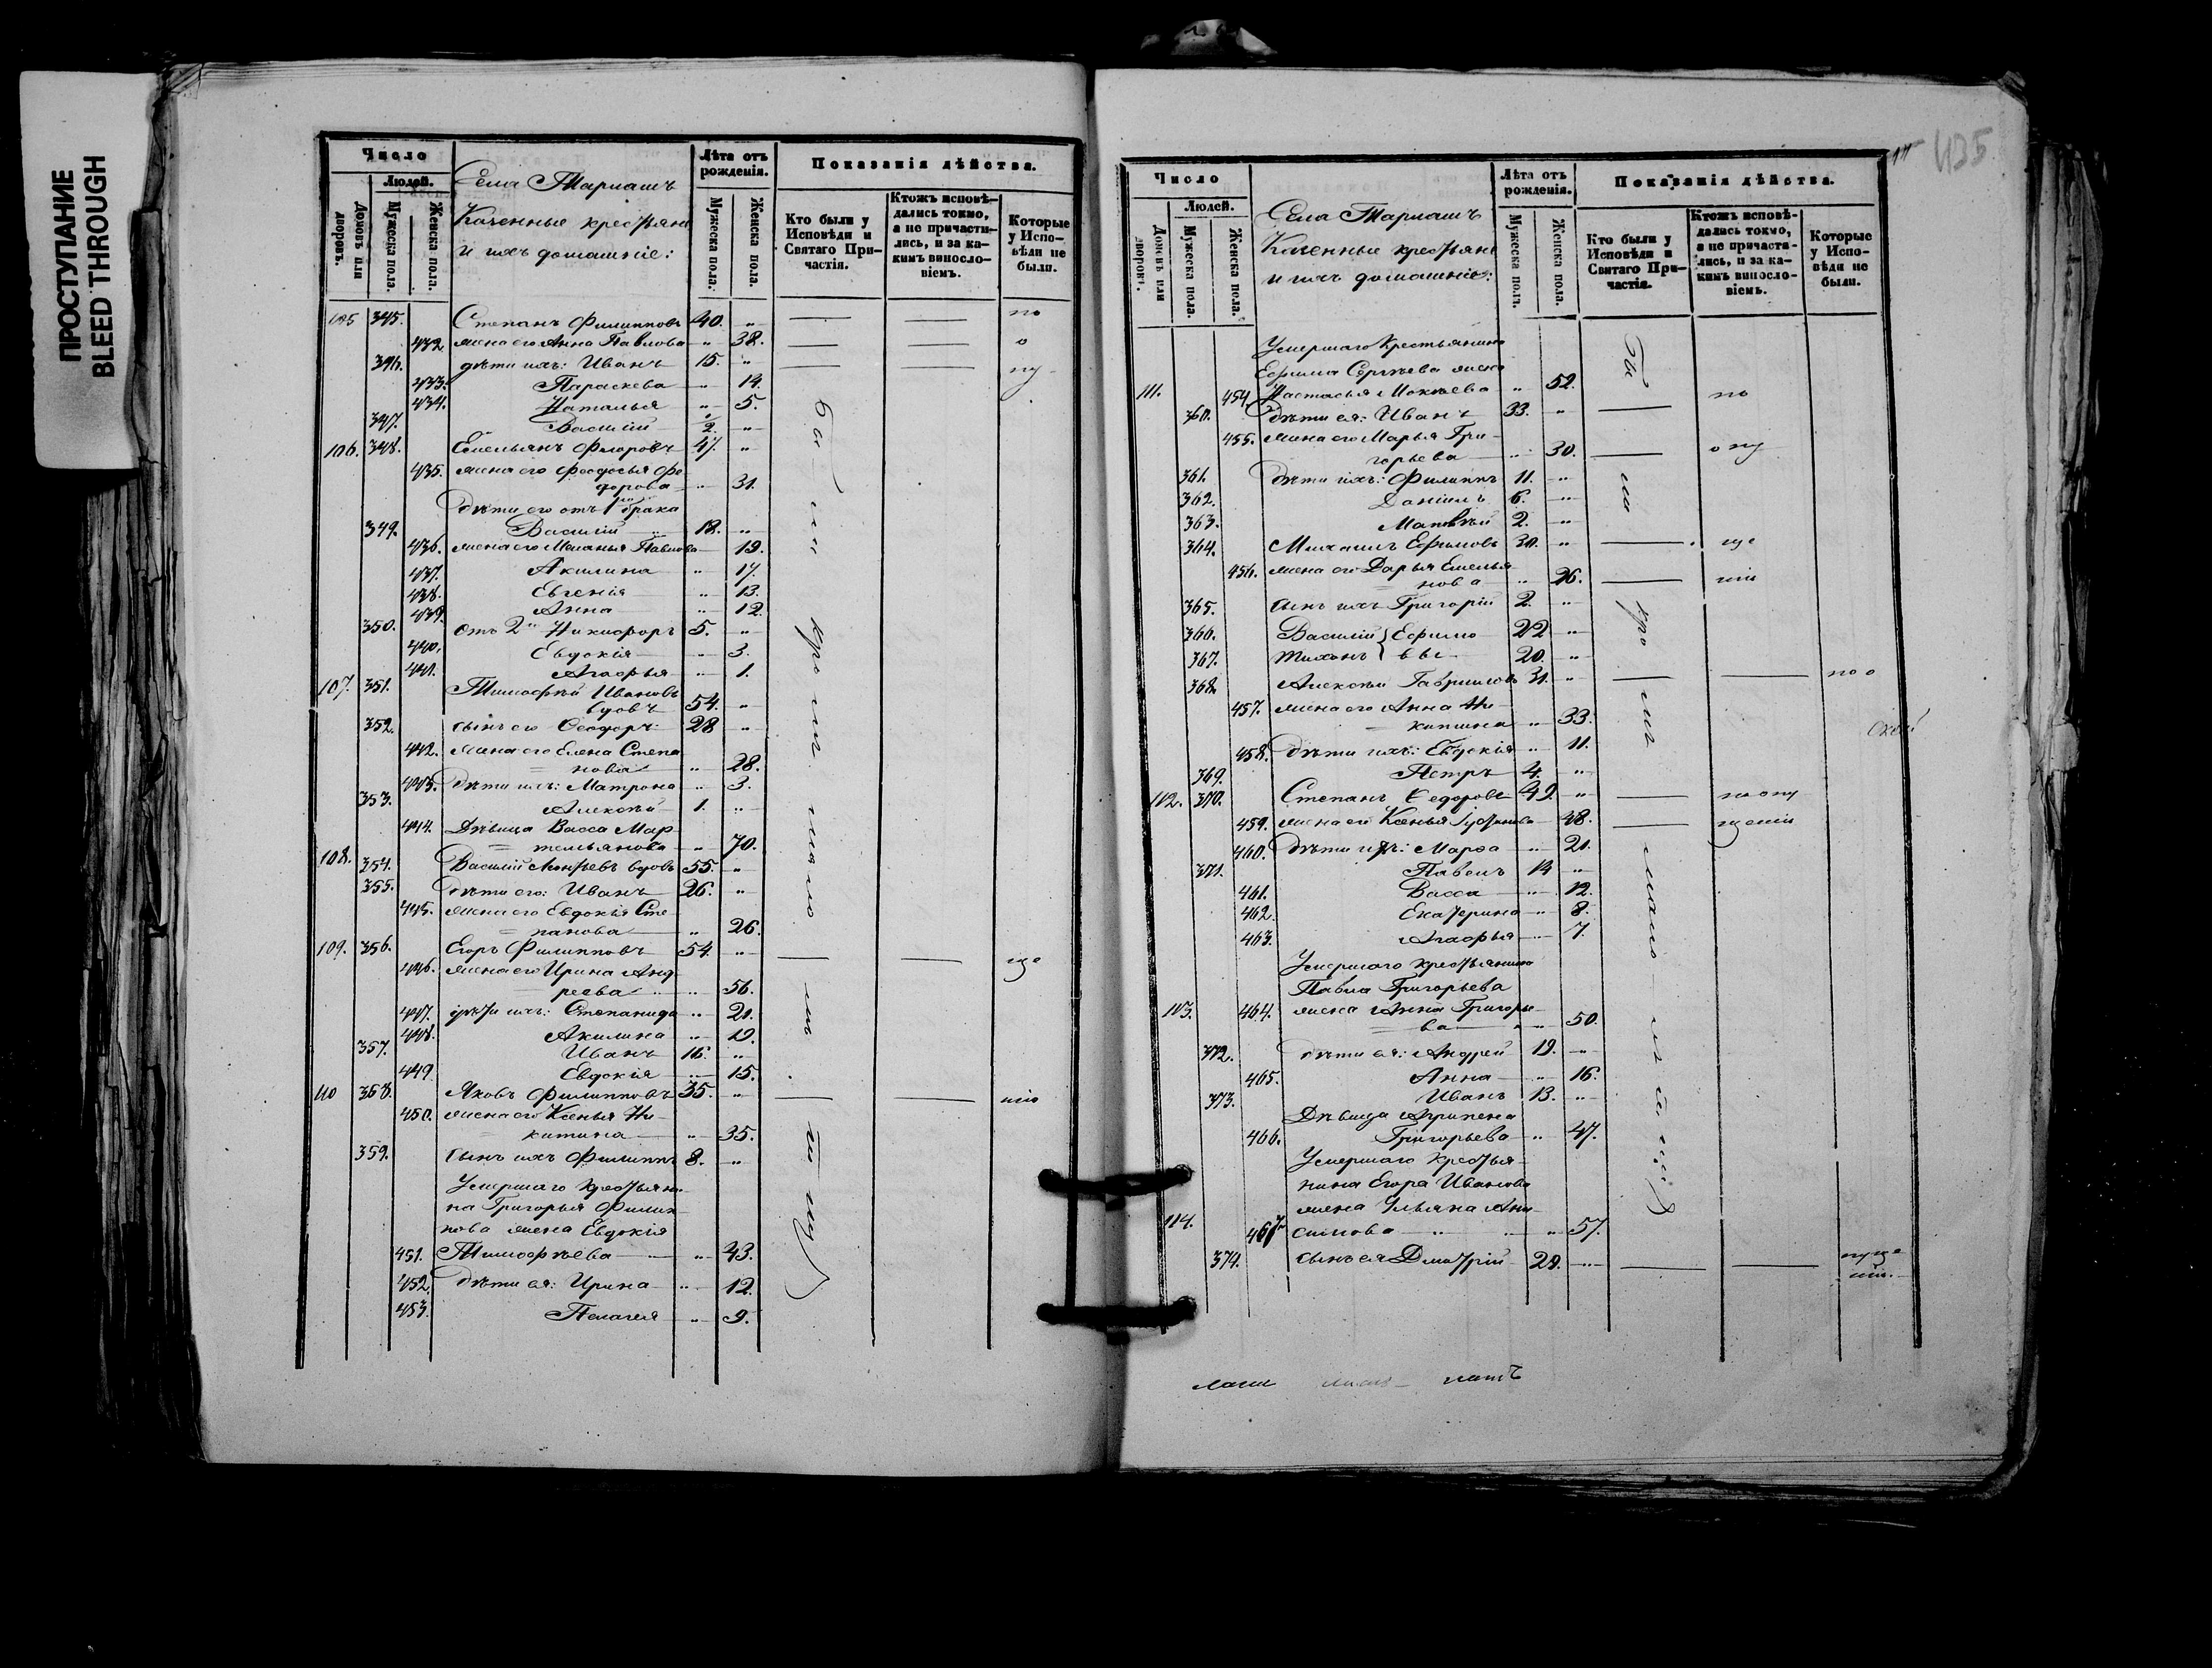 ПРОСТУПАНИЕ
BLEED THROUGH
Число
Людей.
Домовъ или дворовъ.
Мужеска пола.
Женска пола.
Села Мариамъ
Казенные крестьяне
и ихъ домашніе:
Лѣта отъ рожденія.
Мужеска пола.
Женска пола.
Показанія дѣйства.
Кто были у Исповѣди и Святаго Причастія.
Ктожъ исповѣдались токмо, а не причастились, и за какимъ винословіемъ.
Которые у Исповѣди не были.
105 345. Степанъ Филипповъ 40. „ по
432. жена его Анна Павлова „ 38. о
346. дѣти ихъ: Иванъ 15. „ пу
433. Параскева „ 14.
434. Наталья „ 5.
347. Василій 2. „
106. 348. Емельянъ Ѳедоровъ 47. „
435. жена его Ѳеодосья Ѳе-
дорова „ 31.
дѣти его отъ 1го брака
349. Василій 18. „
436. жена его Меланья Павлова 19.
437. Акилина „ 17.
438. Евгенія „ 13.
439. Анна „ 12.
350. отъ 2го Никифоръ 5. „
440. Евдокія „ 3.
441. Агафья „ 1.
107. 351. Тимофѣй Ивановъ
вдовъ 54. „
352. сынъ его Ѳеодоръ 28 „
442. жена его Елена Степа-
нова „ 28.
443. дѣти ихъ: Матрона „ 3.
353. Алексѣй 1. „
444. Дѣвица Васса Мар-
темьянова „ 70.
108. 354. Василій вдовъ 55. „
355. дѣти его: Иванъ 26. „
445. жена его Евдокія Сте-
панова „ 26.
109. 356. Егоръ Филипповъ 54. „ ще
446. жена его Ирина Анд-
реева „ 56.
447. дѣти ихъ: Степанида „ 21.
448. Акилина „ 19.
357. Иванъ 16. „
449 Евдокія „ 15.
110 358. Яковъ Филипповъ 35. „ нію
450. жена его Ксенья Ни-
китина „ 35.
359. сынъ ихъ Филиппъ 8. „
Умершаго крестьяни-
на Григорья Филип-
пова жена Евдокія
451. Тимофѣева „ 43.
452. дѣти ея: Ирина „ 12.
453. Пелагея „ 9.
Были кромѣ мало
435
Число
Людей.
Домовъ или дворовъ.
Мужеска пола.
Женска пола.
Села Мариамъ
Казенные крестьяне
и ихъ домашніе:
Лѣта отъ рожденія.
Мужеска полъ.
Женска пола.
Показанія дѣйства.
Кто были у Исповѣди и Святаго Причастія.
Ктожъ исповѣдались токмо, а не причастились, и за какимъ винословіемъ.
Которые у Исповѣди не были.
Умершаго крестьянина
Ефима Сергѣева жена
111. 454 Настасья Мокѣева „ 52.
360. дѣти ея: Иванъ 33. „ по
455. жена его Марья Гри-
горьева „ 30. опу
361. дѣти ихъ: Филиппъ 11. „
362. Даніилъ 6. „
363. Матвѣй 2. „
364. Михаилъ Ефимовъ 30. „ ще
456. жена его Дарья Емелья-
нова „ 26. нію
365. сынъ ихъ Григорій 2. „
366. Василій } Ефимо- 22 „
367. Тихонъ } вы 20. „
368. Алексѣй Гавриловъ 31. „ по о
457. жена его Анна Ни-
китина „ 33.
458. дѣти ихъ: Евдокія „ 11.
369. Петръ 4. „
112. 370. Степанъ Ѳедоровъ 49. „ по опу
459. жена его Ксенья 48. щенію
460. дѣти ихъ: Марѳа „ 21.
371. Павелъ 14 „
461. Васса „ 12.
462. Екатерина „ 8.
463. Агафья „ 7.
Умершаго крестьянина
Павла Григорьева
113. 464. жена Анна Григорье-
ва „ 50.
372. дѣти ея: Андрей 19. „
465. Анна „ 16.
373. Иванъ 13. „
Дѣвица Агрипена
466. Григорьева „ 47.
Умершаго крестья-
нина Егора Иванова
жена Ульяна Ани-
114. 467 симова „ 57.
374. сынъ ея Дмитрій 28. „ пуще
нію.
Были кромѣ мало